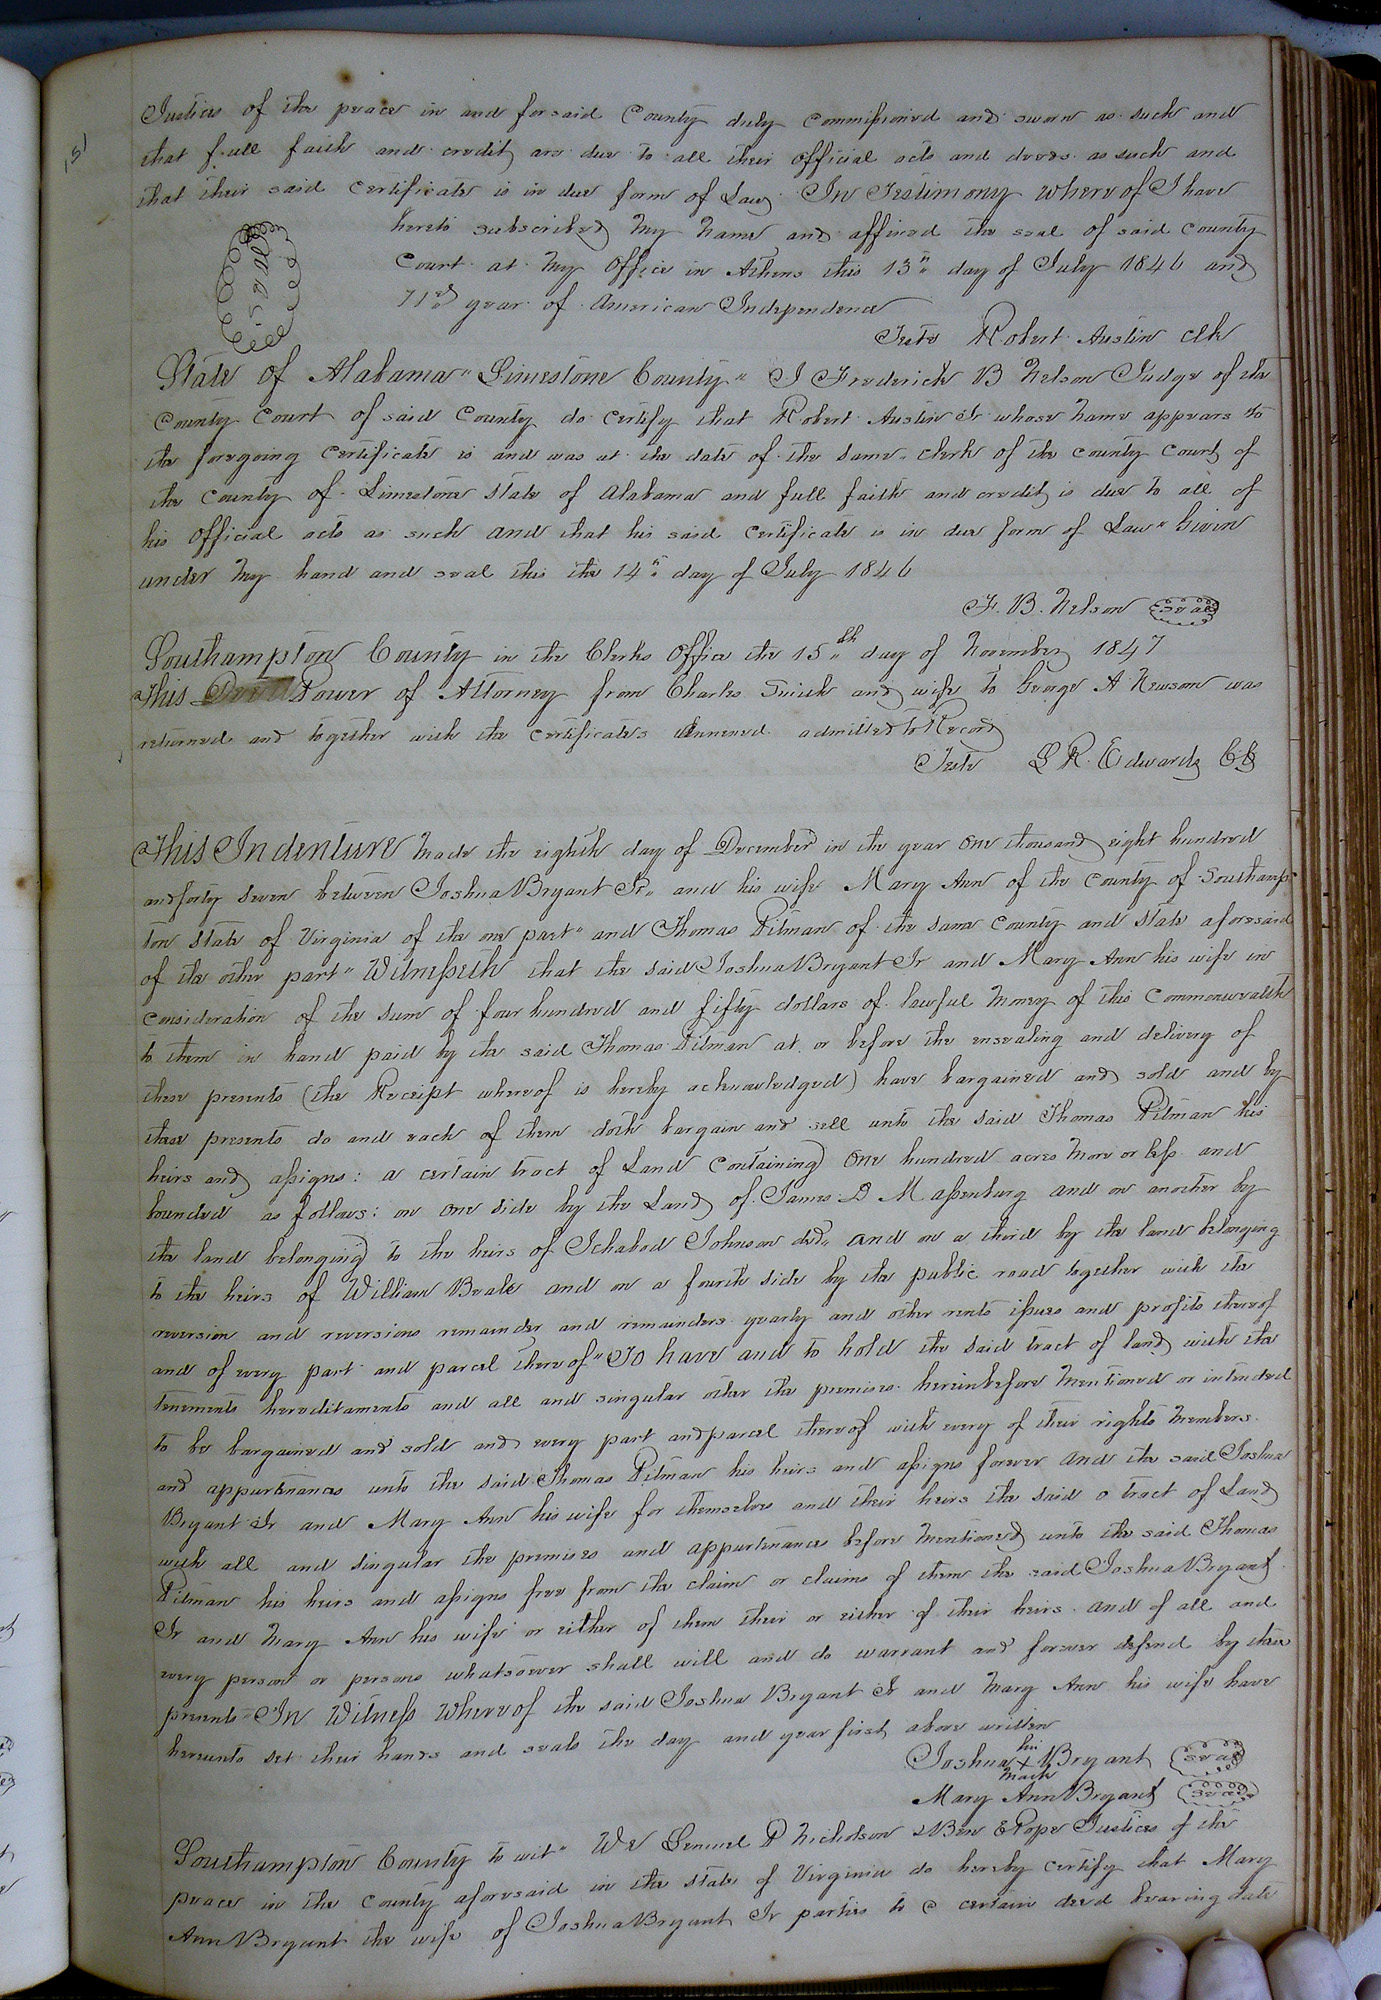 151
Justices of the peace in and for said County duly commissioned and sworn as such and
that full faith and credit are due to all their official acts and deeds as such and
that their said certificate is in due form of Law In Testimony whereof I have
hereto subscribed my name and affixed the seal of said County
Court at my office in Athens this 13th day of July 1846 and
71st year of American Independence
Seal
Teste Robert Austin clk
State of Alabama Limestone County I Frederick B Nelson Judge of the
County Court of said County do certify that Robert Austin Jr whose name appears to
the foregoing certificate is and was at the date of the same clerk of the county court of
the County of Limestone State of Alabama and full faith and credit is due to all of
his official acts as such and that his said certificate is in due form of Law" Given
under my hand and seal this the 14th day of July 1846
F. B. Nelson Seal
Southampton County in the Clerks Office the 15th day of November 1847
This Deed Power of Attorney from Charles and wife to George A Newsom was
returned and together with the certificates annexed admitted to Record
Teste L R. Edwards CC
This Indenture made the eighth day of December in the year one thousand eight hundred
and forty seven between Joshua Bryant Sr and his wife Mary Ann of the County of Southamp
ton State of Virginia of the one part" and Thomas Pitman of the same County and State aforesaid
of the other part" Witnesseth that the said Joshua Bryant Jr and Mary Ann his wife in
consideration of the sum of four hundred and fifty dollars of lawful money of this Commonwealth
to them in hand paid by the said Thomas Pitman at or before the ensealing and delivery of
these presents (the Receipt whereof is hereby acknowledged) have bargained and sold and by
these presents do and each of them doth bargain and sell unto the said Thomas Pitman his
heirs and assigns: a certain tract of Land containing one hundred acres more or less and
bounded as follows: on one side by the Land of James D Massenburg and on another by
the land belonging to the heirs of Ichabod Johnson decd and on a third by the land belonging
to the heirs of William Beale and on a fourth side by the public road together with the
reversion and reversions remainder and remainders yearly and other rents issues and profits thereof
and of every part and parcel thereof" To have and to hold the said tract of land with the
tenements hereditaments and all and singular other the premises hereinbefore mentioned or intended
to be bargained and sold and every part and parcel thereof with every of their rights members
and appurtenances unto the said Thomas Pitman his heirs and assigns forever And the said Joshua
Bryant Jr and Mary Ann his wife for themselves and their heirs the said a tract of Land
with all and singular the premises and appurtenances before mentioned unto the said Thomas
Pitman his heirs and assigns free from the claim or claims of them the said Joshua Bryant
Jr and Mary Ann his wife or either of them their or either of their heirs and of all and
every person or persons whatsoever shall will and do warrant and forever defend by these
presents" In Witness whereof the said Joshua Bryant Jr and Mary Ann his wife have
hereunto set their hands and seals the day and year first above written
his
Joshua X Bryant Seal
mark
Mary Ann Bryant Seal
Southampton County to wit" We Lemuel P Nicholson & Ben E Pope Justices of the
peace in the county aforesaid in the state of Virginia do hereby certify that Mary
Ann Bryant the wife of Joshua Bryant Jr parties to a certain deed bearing date